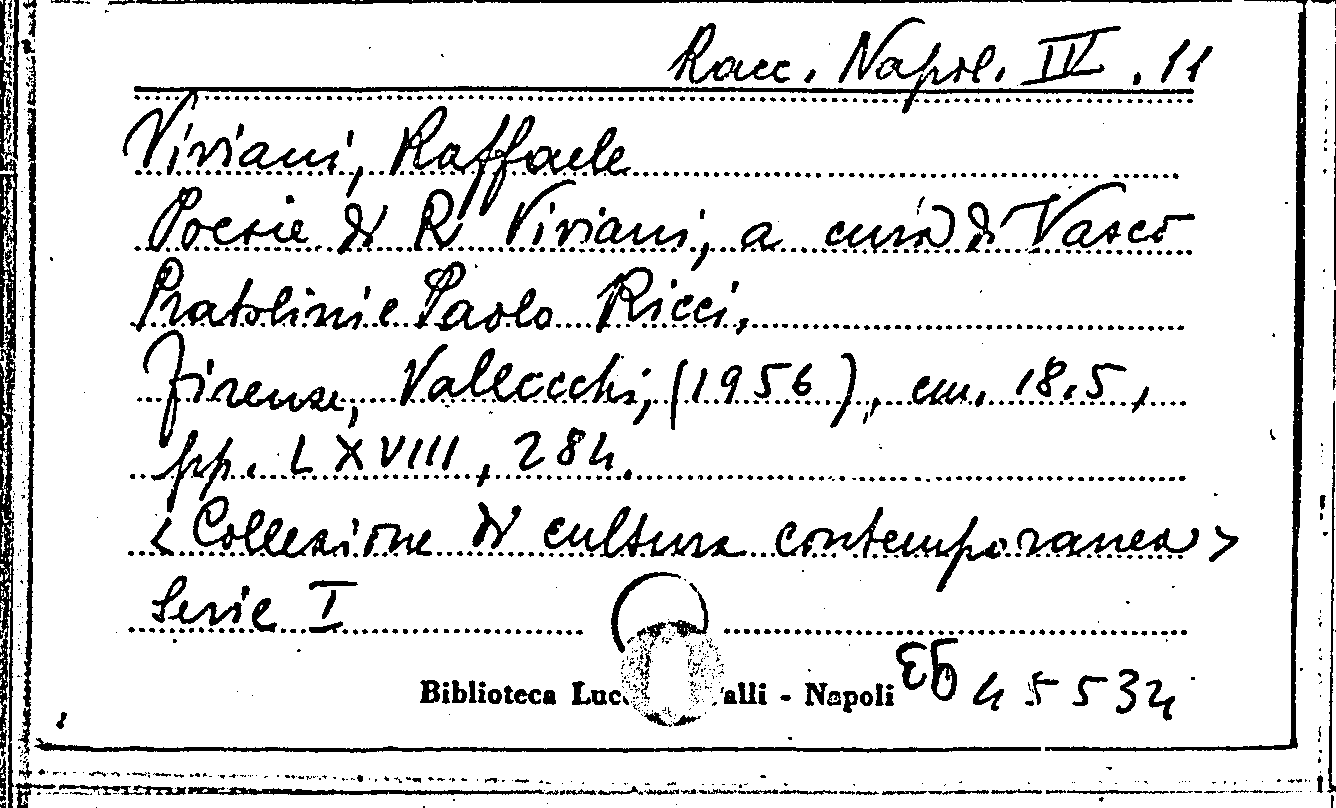 Racc. Napol. IV. 11
Viviani, Raffaele
Poesie di R. Viviani, a cura di Vasco
Pratolini e Paolo Ricci,
Firenze, Vallecchi, (1956), cm. 18.5,
pp. LXVIII, 284.
<Collezione di cultura contemporanea>
Serie I
Biblioteca Luc alli - Napoli
45534